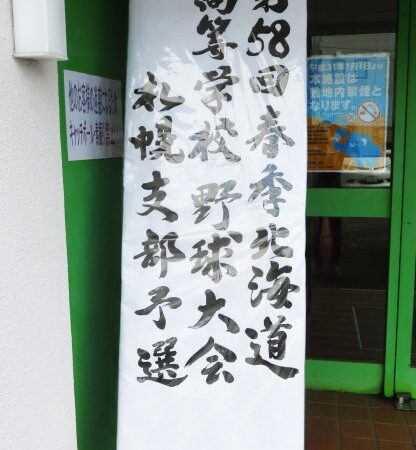 第58回春季北海道
高等学校野球大会
札幌支部予選
平成31年1月1日より
本施設は
敷地内禁煙と
なります。